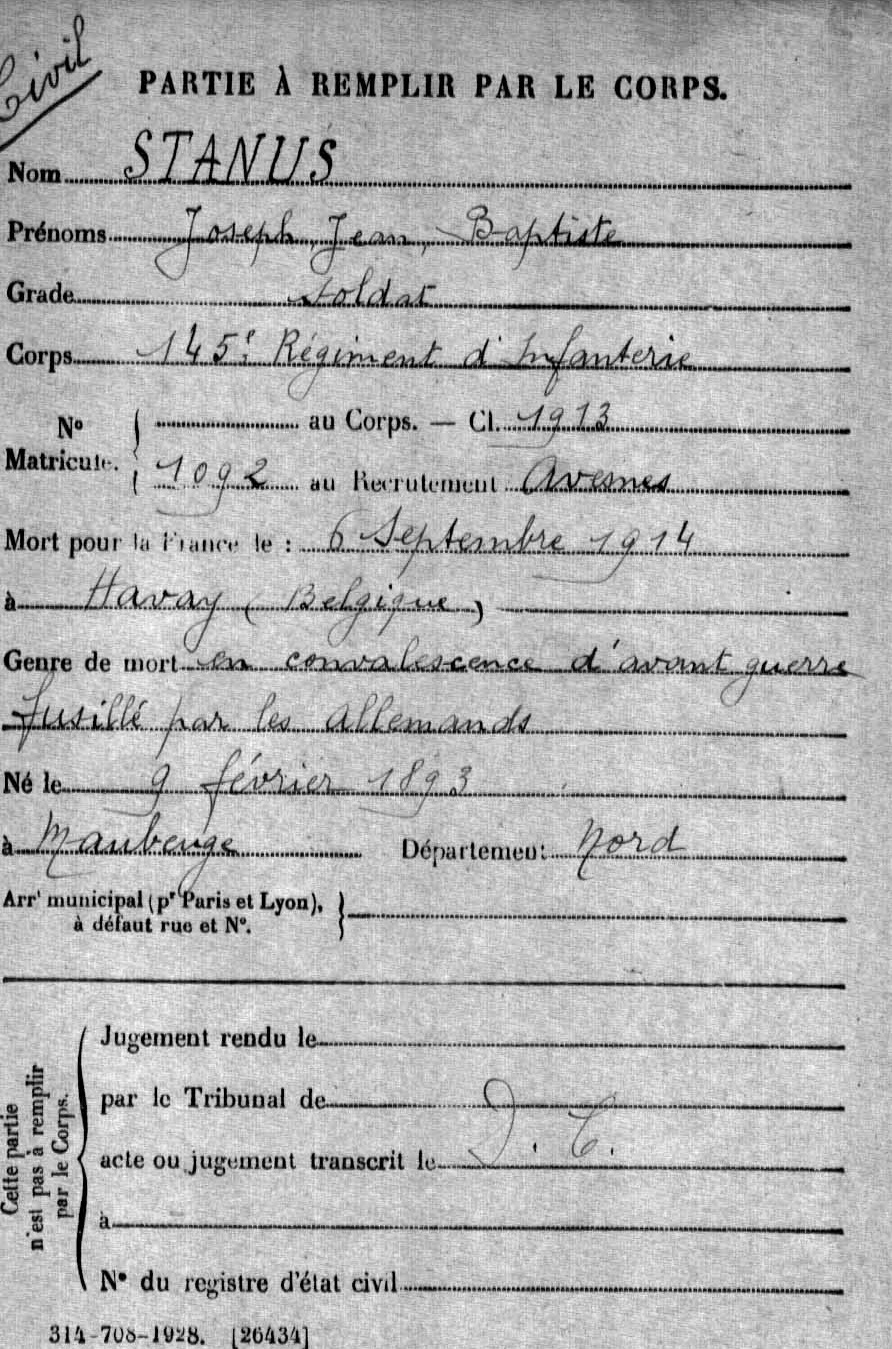 Civil
PARTIE À REMPLIR PAR LE CORPS.
Nom STANUS
Prénoms Joseph, Jean, Baptiste
Grade soldat
Corps 145e Régiment d'Infanterie
No Matricule. { au Corps. — Cl. 1913
1092 au Recrutement Avesnes
Mort pour la France le : 6 Septembre 1914
à Havay (Belgique)
Genre de mort en convalescence d'avant guerre
fusillé par les allemands
Né le 9 février 1893
à Maubeuge Département Nord
Arrt municipal (pr Paris et Lyon),
à défaut rue et No.
Cette partie
n'est pas à remplir
par le Corps.
Jugement rendu le
par le Tribunal de
acte ou jugement transcrit le
à
No du registre d'état civil
314-708-1928. [26434]